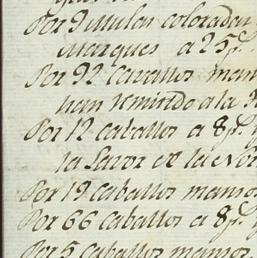 Por 9 Mulas coloradas
Marques a 25 p.s
Por 92 Cavallos man
han remitido a la
Por 12 caballos a 8 p.s y
la Labor de la No
Por 19 Caballos manso
Por 66 Caballos a 8 p.s
Por 5 Caballos mansos